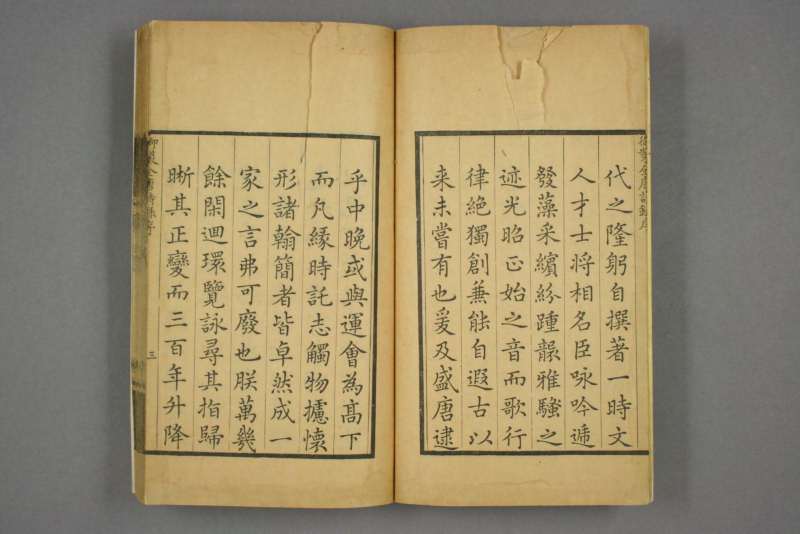 代之隆躬自撰著一時文
人才士將相名臣咏吟遞
發藻采繽紛踵韻雅騷之
迹光昭正始之音而歌行
律絶獨創兼能自遐古以
来未嘗有也爰及盛唐逮
乎中晚或與運會為高下
而凡緣時託志觸物攄懷
形諸翰簡者皆卓然成一
家之言弗可廢也朕萬幾
餘閑迴環覽詠尋其指歸
晰其正變而三百年升降
三